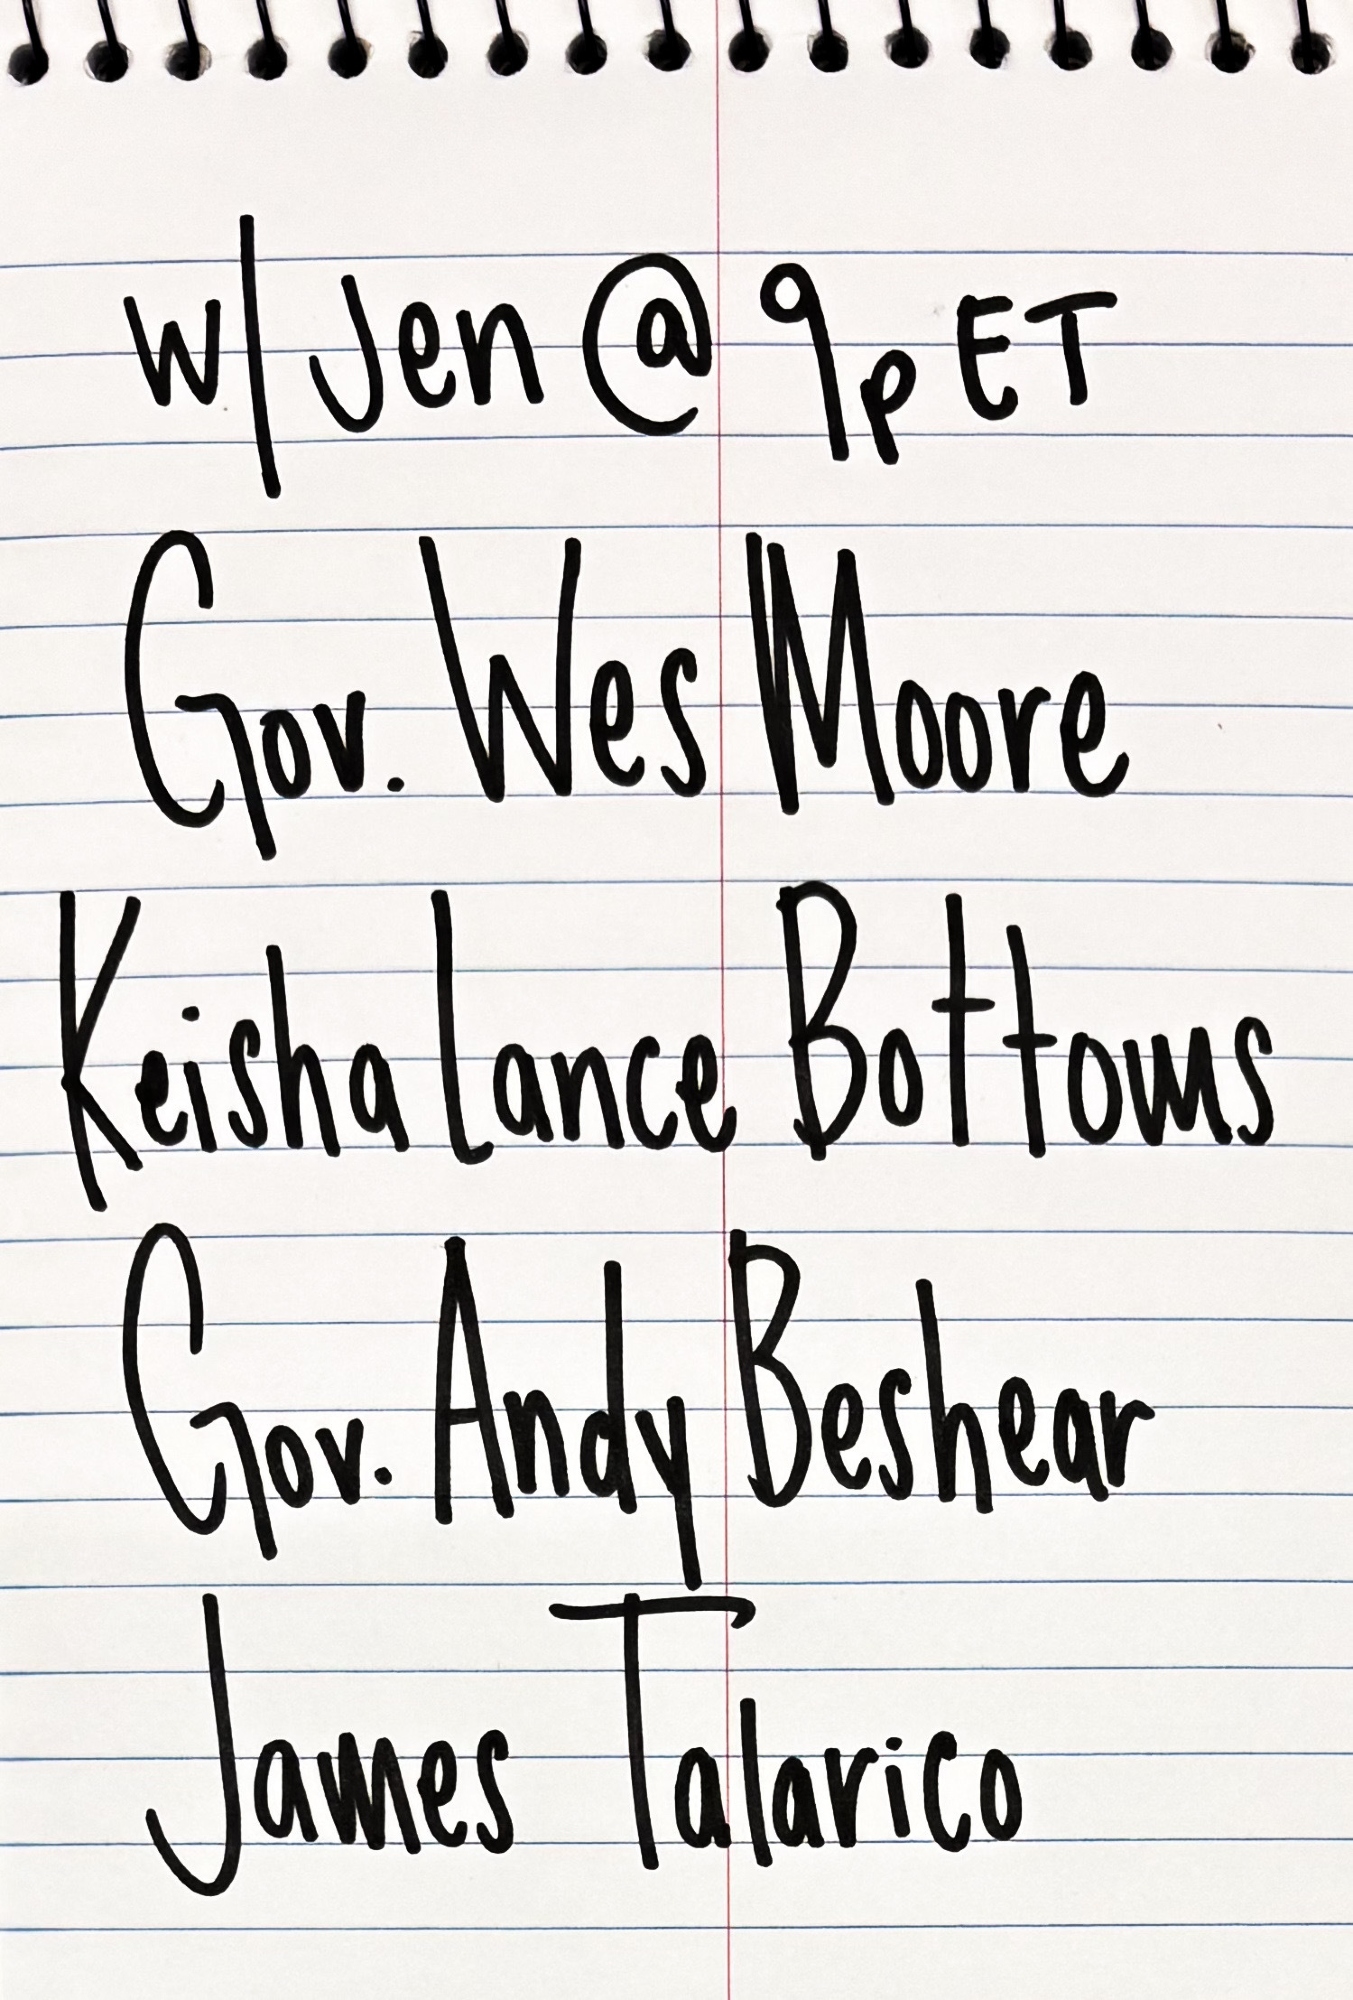 w/ Jen @ 9p ET
Gov. Wes Moore
Keisha Lance Bottoms
Gov. Andy Beshear
James Talarico